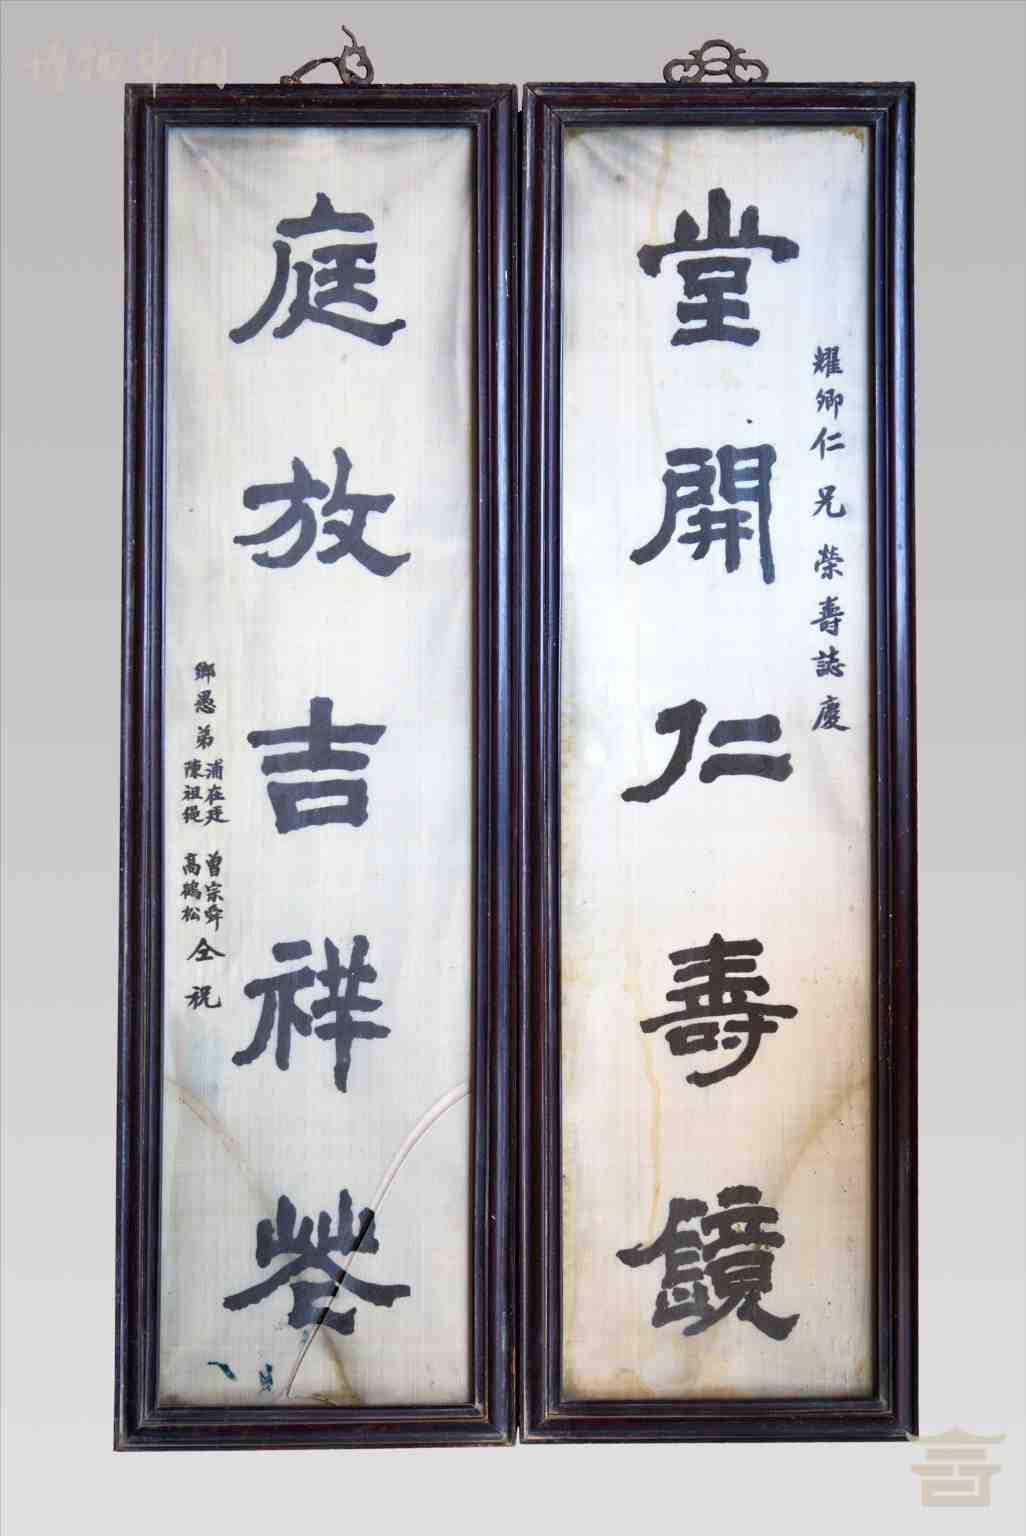 堂開仁壽鏡
耀卿仁兄榮壽誌慶
庭放吉祥花
鄉愚弟
浦在廷
陳祖繩
曾宗舜
高鶴松
仝祝
博物中国